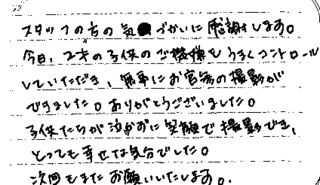 スタッフの方の気づかいに感謝します。
今日、2才の子供のご機嫌をうまくコントロール
していただき、無事にお宮参の撮影が
できました。ありがとうございました。
子供たちが泣かずに笑顔で撮影でき、
とっても幸せな気分でした。
次回もまたお願いいたします。